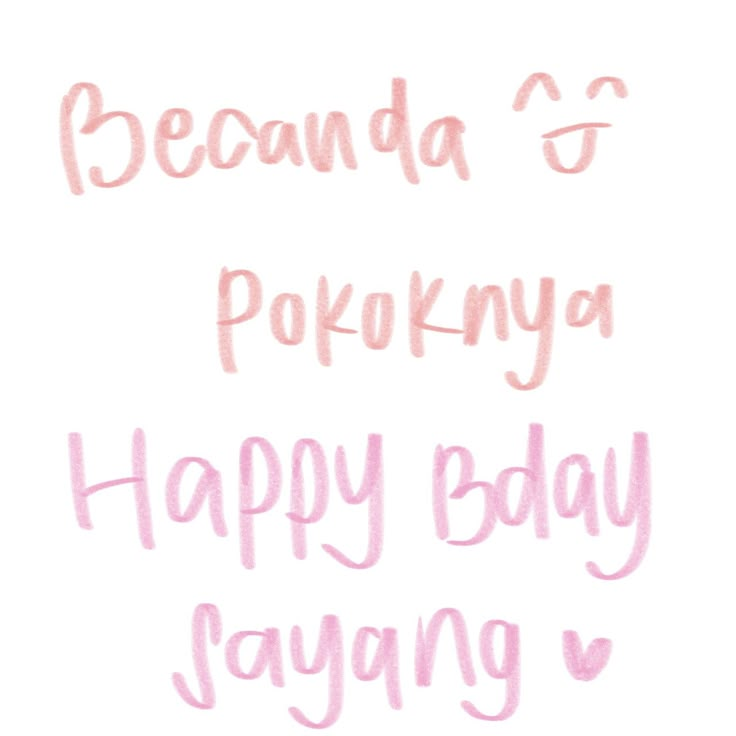 Becanda
Pokoknya
Happy Bday
Sayang